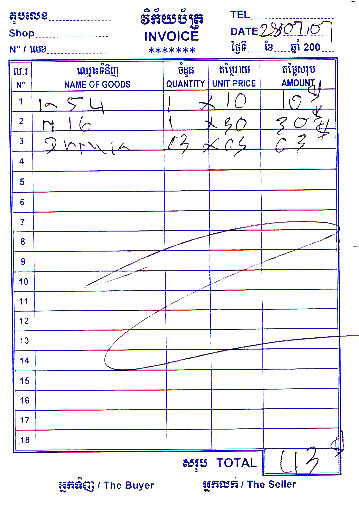 តូបលេខ
វិក្កយប័ត្រ
TEL
Shop
INVOICE
DATE 28/07/07
N° / លេខ
*******
ថ្ងៃទី ខែ ឆ្នាំ 200
ល.រ ឈ្មោះទំនិញ ចំនួន តម្លៃរាយ តម្លៃសរុប
N° NAME OF GOODS QUANTITY UNIT PRICE AMOUNT
1 54 1 x 10 10$
2 16 1 x 30 30$
3
4
5
6
7
8
9
10
11
12
13
14
15
16
17
18
សរុប TOTAL 43$
អ្នកទិញ / The Buyer
អ្នកលក់ / The Seller